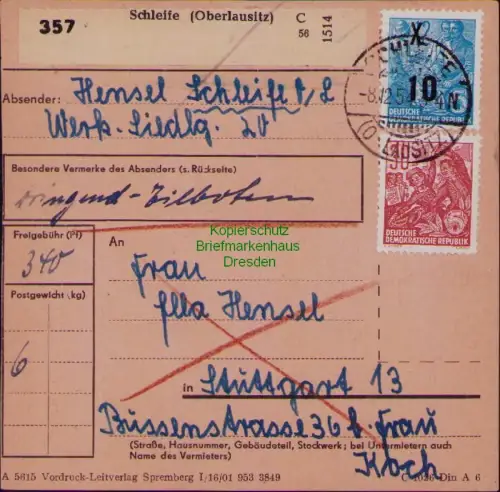 357
Schleife (Oberlausitz)
C
56
1514
Absender: Hensel Schleife O/L
Werk-Siedlg.
Besondere Vermerke des Absenders (s. Rückseite)
dringend-Eilboten
Freigebühr (Pf)
340
Postgewicht (kg)
6
An
Frau
Ella Hensel
in Stuttgart 13
Bussenstrasse 36 b. Frau
Koch
(Straße, Hausnummer, Gebäudeteil, Stockwerk; bei Untermietern auch
Name des Vermieters)
A 5615 Vordruck-Leitverlag Spremberg I/16/01 953 3849
Din A 6
10
DEUTSCHE
DEMOKRATISCHE REPUBLIK
DEUTSCHE
DEMOKRATISCHE REPUBLIK
SCHLEIFE
(O LAUSITZ)
Kopierschutz
Briefmarkenhaus
Dresden